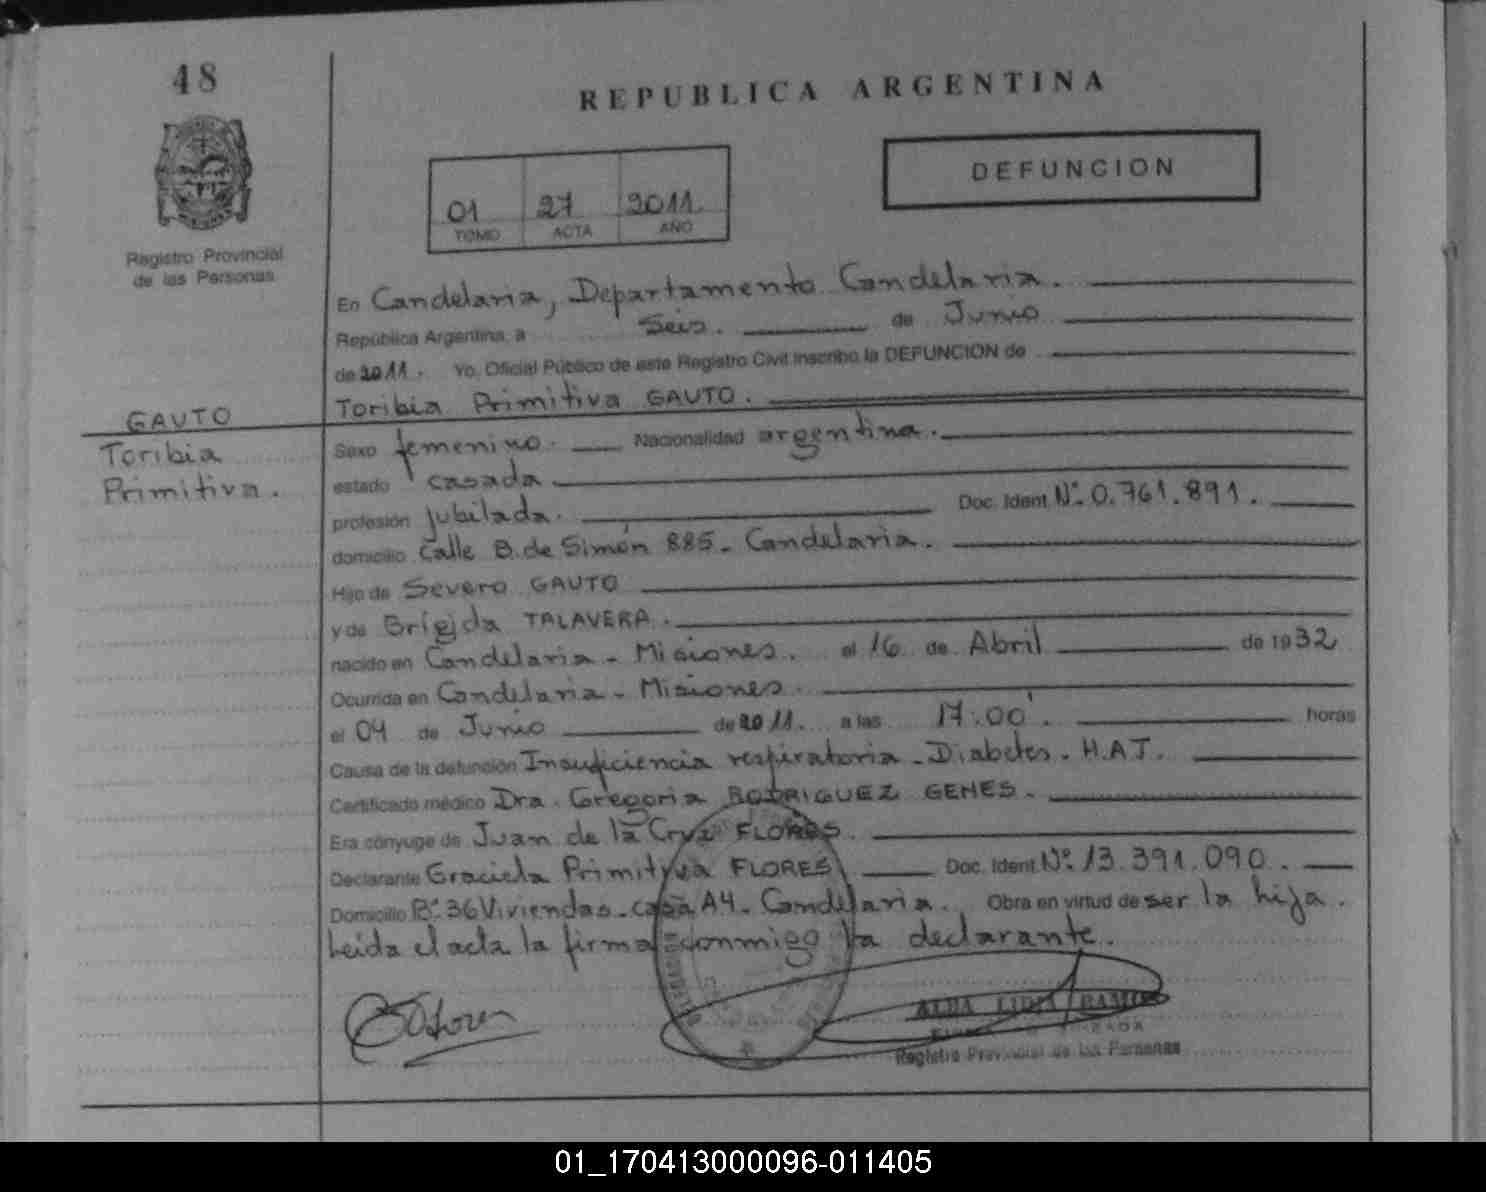 48
REPUBLICA ARGENTINA
DEFUNCION
01 27 2011
TOMO ACTA AÑO
Registro Provincial
de las Personas
En Candelaria, Departamento Candelaria.
República Argentina, a Seis. de Junio
de 2011. Yo, Oficial Público de este Registro Civil inscribo la DEFUNCION de
Toribia Primitiva GAUTO.
GAUTO
Toribia
Primitiva.
Sexo femenino. Nacionalidad argentina.
estado casada
profesión jubilada. Doc. Ident. Nº. 0.761.891.
domicilio Calle B. de Simón 885. Candelaria.
Hijo de Severo GAUTO
y de Brígida TALAVERA.
nacido en Candelaria - Misiones. el 16 de Abril de 1932
Ocurrida en Candelaria - Misiones.
el 04 de Junio de 2011. a las 17:00'. horas
Causa de la defunción Insuficiencia respiratoria - Diabetes. H.A.T.
Certificado médico Dra. Gregoria RODRIGUEZ GENES.
Era cónyuge de Juan de la Cruz FLORES.
Declarante Graciela Primitiva FLORES Doc. Ident. Nº. 13.391.090.
Domicilio Bº. 36 Viviendas - casa A4. Candelaria. Obra en virtud de ser la hija.
Leida el acta la firma conmigo la declarante.
ALBA LIDIA
Registro Provincial de las Personas
01_170413000096-011405